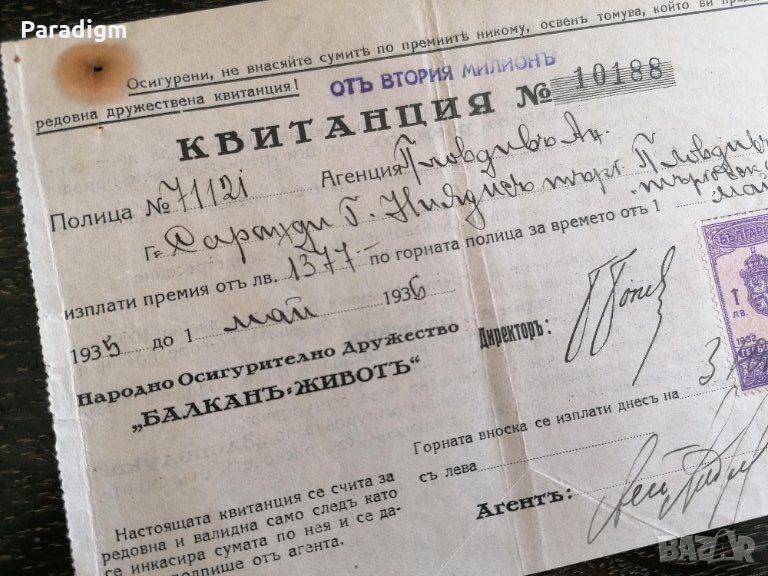 Paradigm
Осигурени, не внасяйте сумитѣ по премиитѣ никому, освенъ томува, който ви
редовна дружествена квитанция!
ОТЪ ВТОРИЯ МИЛИОНЪ
КВИТАНЦИЯ № 10188
Полица № 71121 Агенция Пловдивъ Ац.
Г. търг. Пловдивъ
изплати премия отъ лв. 1377 по горната полица за времето отъ 1 май
1935 до 1 май 1936
Народно Осигурително Дружество
„БАЛКАНЪ-ЖИВОТЪ“
Директоръ:
БЪЛГАРИЯ
1 ЛВ.
1932
Горната вноска се изплати днесъ на 3
съ лева
Агентъ:
Настоящата квитанция се счита за
редовна и валидна само следъ като
се инкасира сумата по нея и се да-
подпише отъ агента.
BAZAR